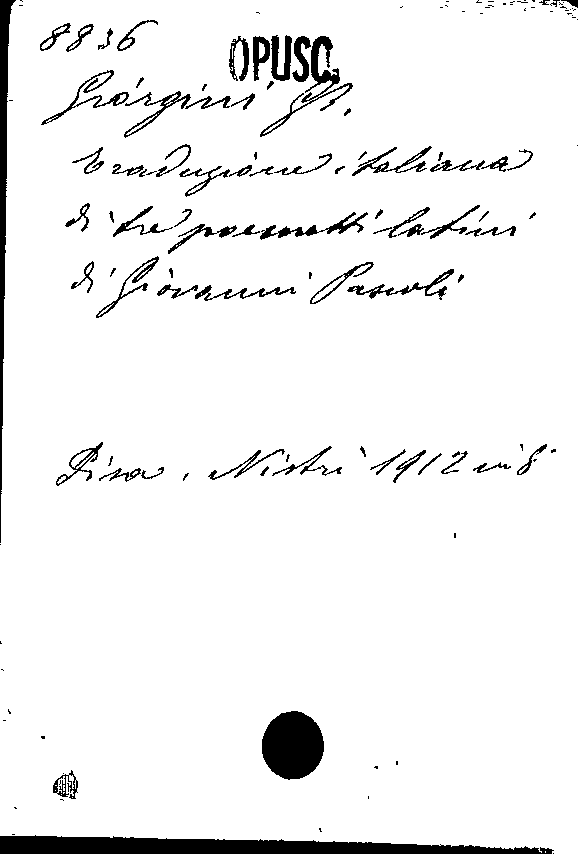 8836
OPUSC.
Giorgini GB.
traduzione italiana
di tre poemetti latini
di Giovanni Pascoli
Pisa, Nistri 1912 in 8°